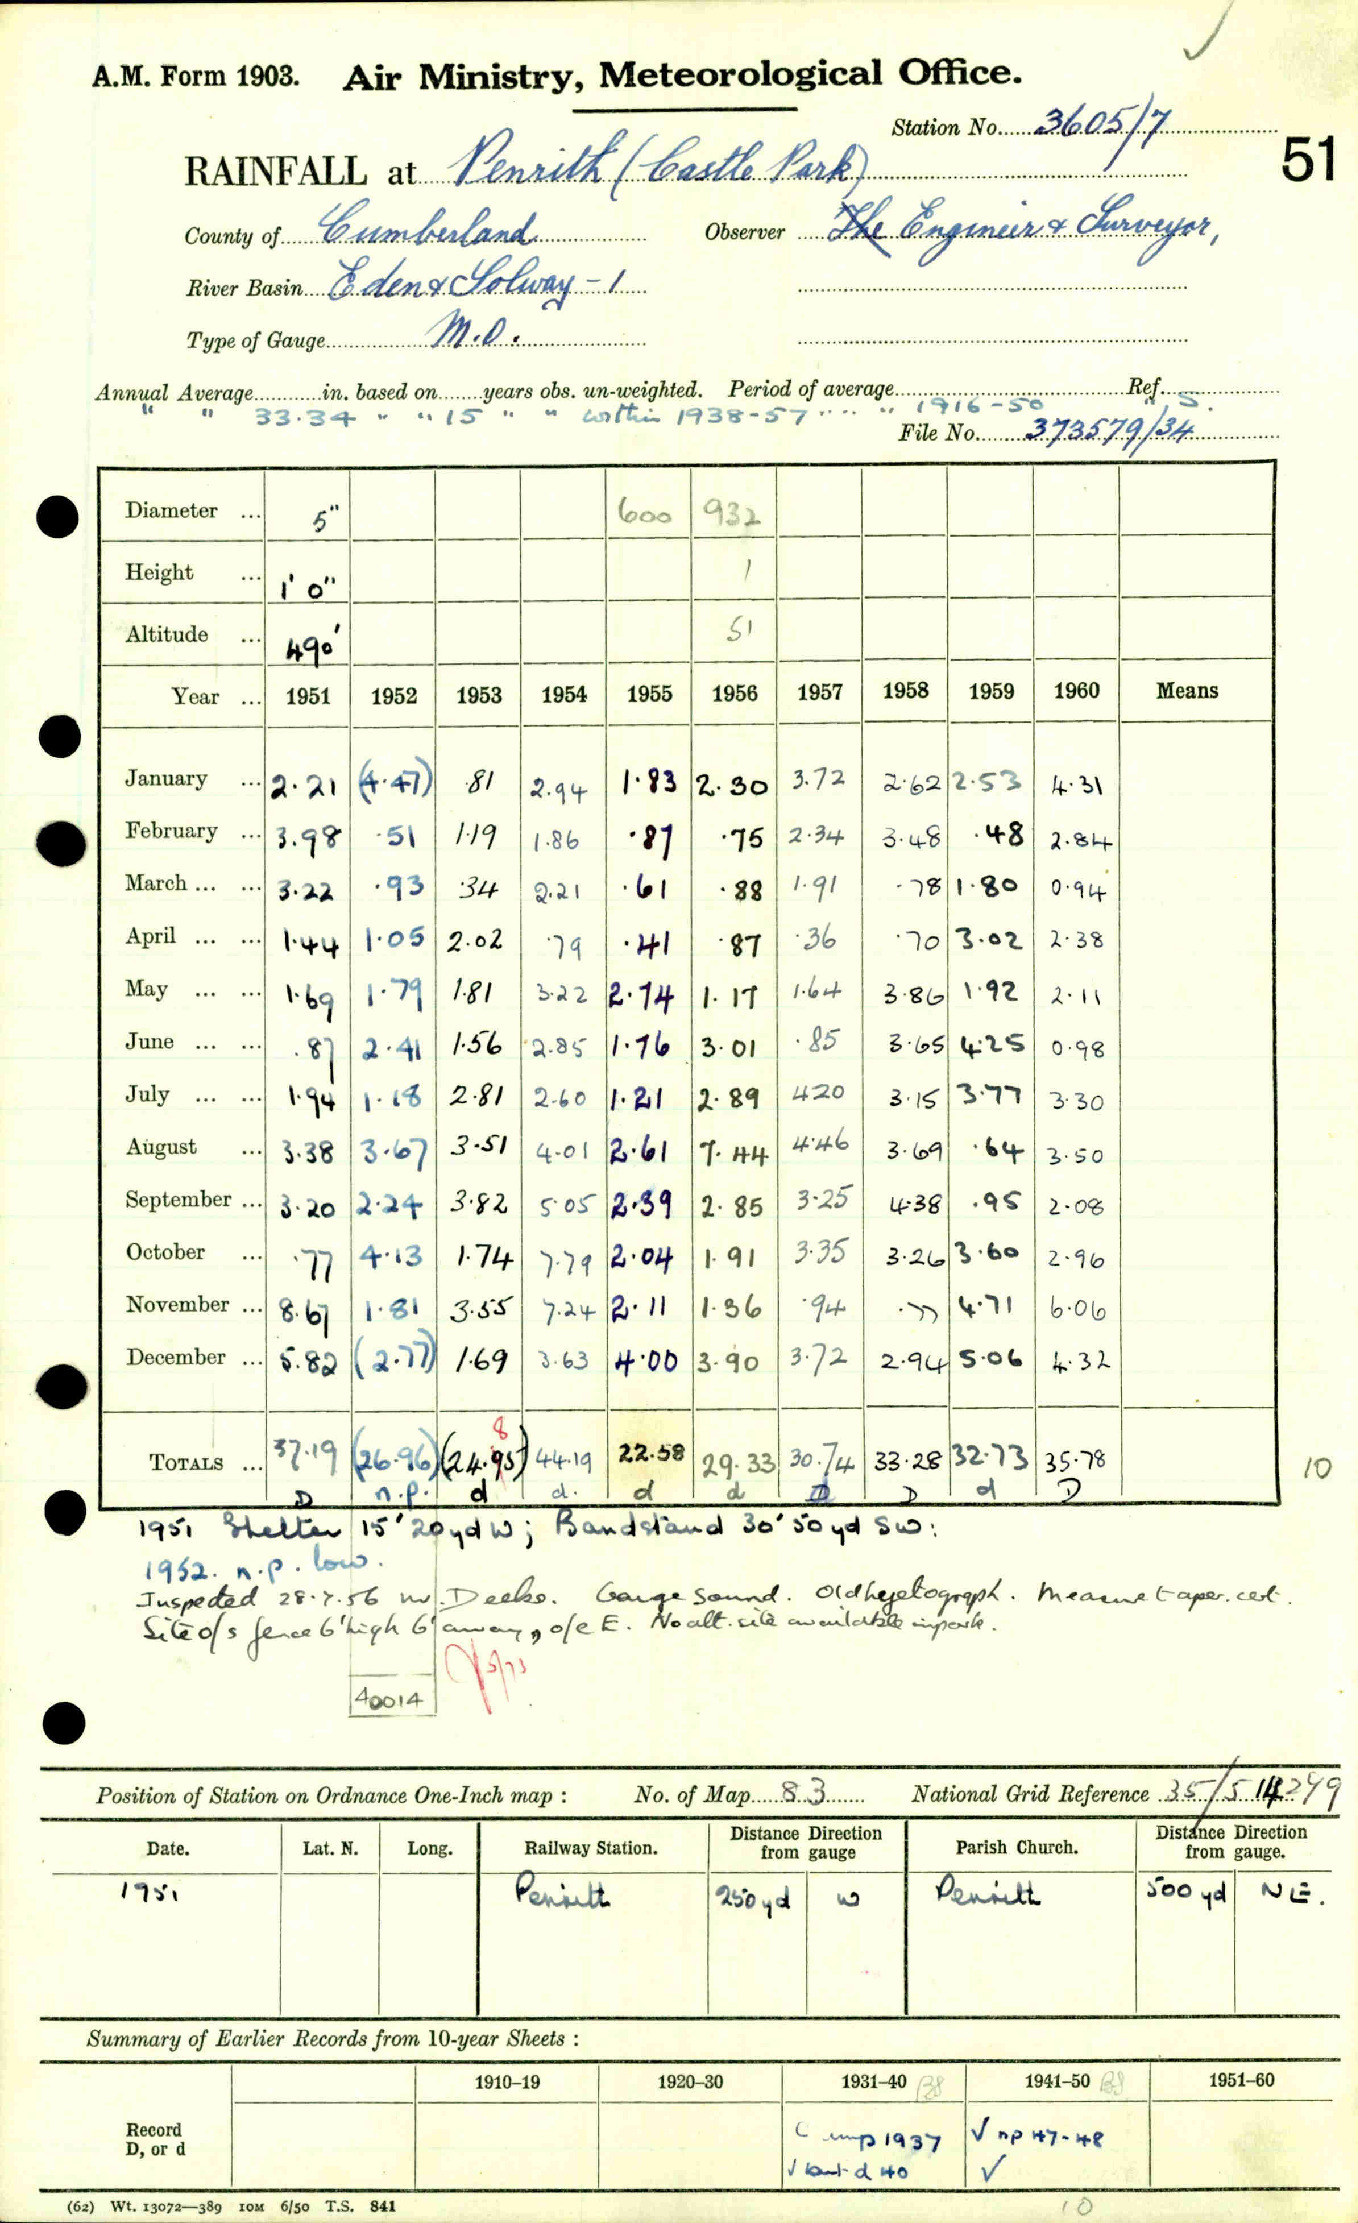 A.M. Form 1903. Air Ministry, Meteorological Office.
Station No. 3605/7
51
RAINFALL at Penrith (Castle Park)
County of Cumberland Observer The Engineer & Surveyor,
River Basin Eden & Solway - 1
Type of Gauge M.O.
Annual Average in. based on years obs. un-weighted. Period of average Ref.
" " 33.34 " " 15 " " within 1938-57 " " " 1916-50 " S.
File No. 373579/34
Diameter ... 5" 600 932
Height ... 1' 0" 1
Altitude ... 490' 51
Year ... 1951 1952 1953 1954 1955 1956 1957 1958 1959 1960 Means
January ... 2.21 (4.47) .81 2.94 1.83 2.30 3.72 2.62 2.53 4.31
February ... 3.98 .51 1.19 1.86 .87 .75 2.34 3.48 .48 2.84
March ... ... 3.22 .93 .34 2.21 .61 .88 1.91 .78 1.80 0.94
April ... ... 1.44 1.05 2.02 .79 .41 .87 .36 .70 3.02 2.38
May ... ... 1.69 1.79 1.81 3.22 2.74 1.17 1.64 3.86 1.92 2.11
June ... ... .87 2.41 1.56 2.85 1.76 3.01 .85 3.65 4.25 0.98
July ... ... 1.94 1.18 2.81 2.60 1.21 2.89 4.20 3.15 3.77 3.30
August ... 3.38 3.67 3.51 4.01 2.61 7.44 4.46 3.69 .64 3.50
September ... 3.20 2.24 3.82 5.05 2.39 2.85 3.25 4.38 .95 2.08
October ... .77 4.13 1.74 7.79 2.04 1.91 3.35 3.26 3.60 2.96
November ... 8.67 1.81 3.55 7.24 2.11 1.36 .94 .77 4.71 6.06
December ... 5.82 (2.77) 1.69 3.63 4.00 3.90 3.72 2.94 5.06 4.32
8
TOTALS ... 37.19 (26.96) (24.95) 44.19 22.58 29.33 30.74 33.28 32.73 35.78
10
D n.p. d d. d d D D d D
1951 Shelter 15' 20yd W; Bandstand 30' 50yd SW:
1952. n.p. low.
Inspected 28.7.56 Mr. Deeks. Gauge sound. Old hyetograph. Measure taper. cert.
Site o/s fence 6' high 6' away, o/c E. No alt. site available in park.
5/73
40014
Position of Station on Ordnance One-Inch map : No. of Map 83 National Grid Reference 35/514299
Date. Lat. N. Long. Railway Station. Distance from gauge Direction Parish Church. Distance from gauge. Direction
1951 Penrith 250yd W Penrith 500yd NE.
Summary of Earlier Records from 10-year Sheets :
1910–19 1920–30 1931–40 1941–50 1951–60
Record
D, or d
1937 √ np 47-48
√ but d 40 √
(62) Wt. 13072—389 10M 6/50 T.S. 841
10